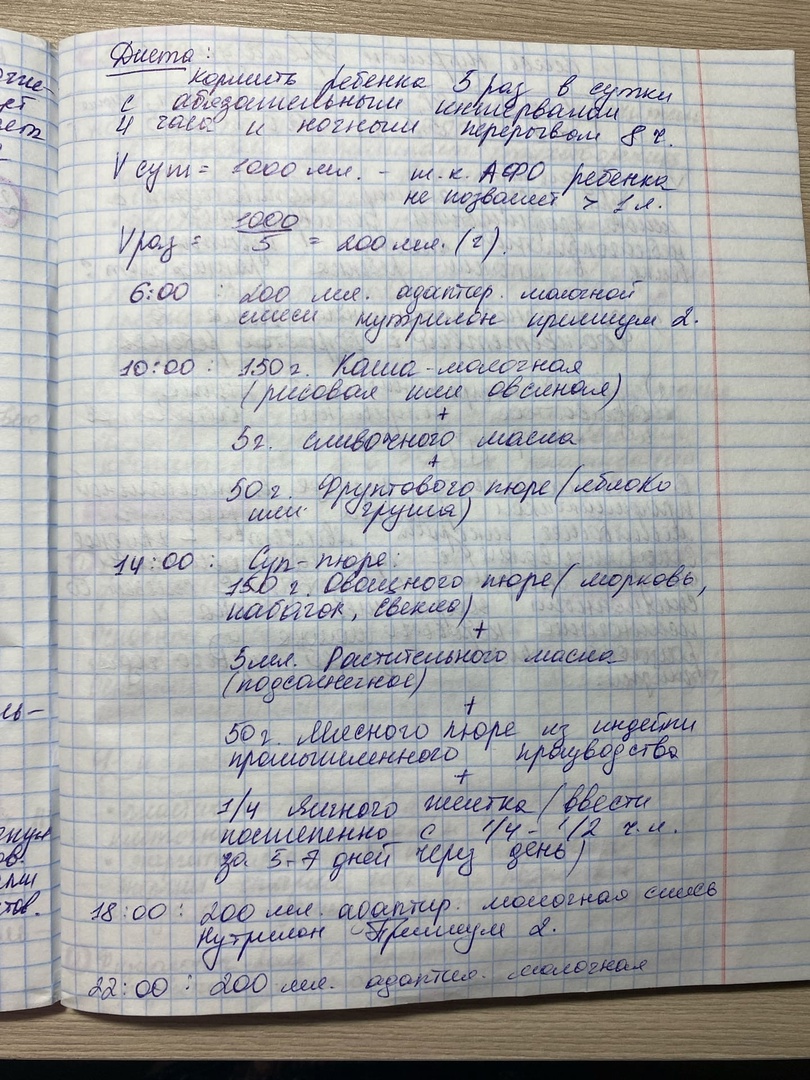 Диета:
кормить ребенка 5 раз в сутки
с обязательным интервалом
4 часа и ночным перерывом 8 ч.
V сут = 1000 мл. - т.к. АФО ребенка
не позволяет > 1 л.
V раз = 1000/5 = 200 мл. (г).
6:00 : 200 мл. адаптир. молочной
смеси нутрилон премиум 2.
10:00 : 150 г. Каша-молочная
(рисовая или овсяная)
+
5 г. сливочного масла
+
50 г. Фруктового пюре (яблоко
или груша)
14:00 : Суп-пюре:
150 г. Овощного пюре (морковь,
кабачок, свекла)
+
5 мл. Растительного масла
(подсолнечное)
+
50 г. Мясного пюре из индейки
промышленного производства
+
1/4 яичного желтка (ввести
постепенно с 1/4 - 1/2 ч.л.
за 5-7 дней через день)
18:00 : 200 мл. адаптир. молочная смесь
Нутрилон Премиум 2.
22:00 : 200 мл. адаптир. молочная